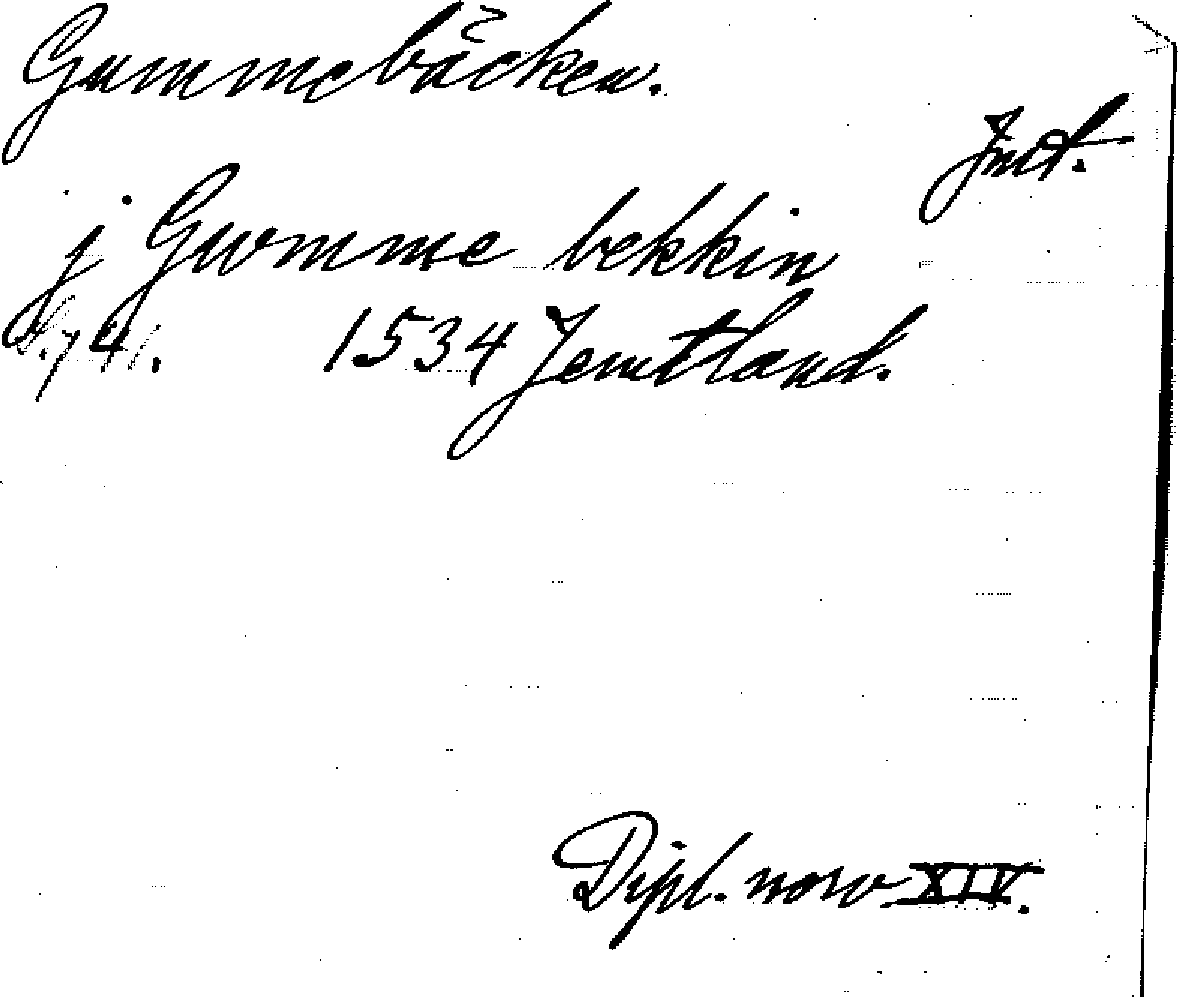 Gummebäcken.
Jmt.
j Gumme bekkin
S. 741. 1534 Jemtland.
Dipl. norv XIV.